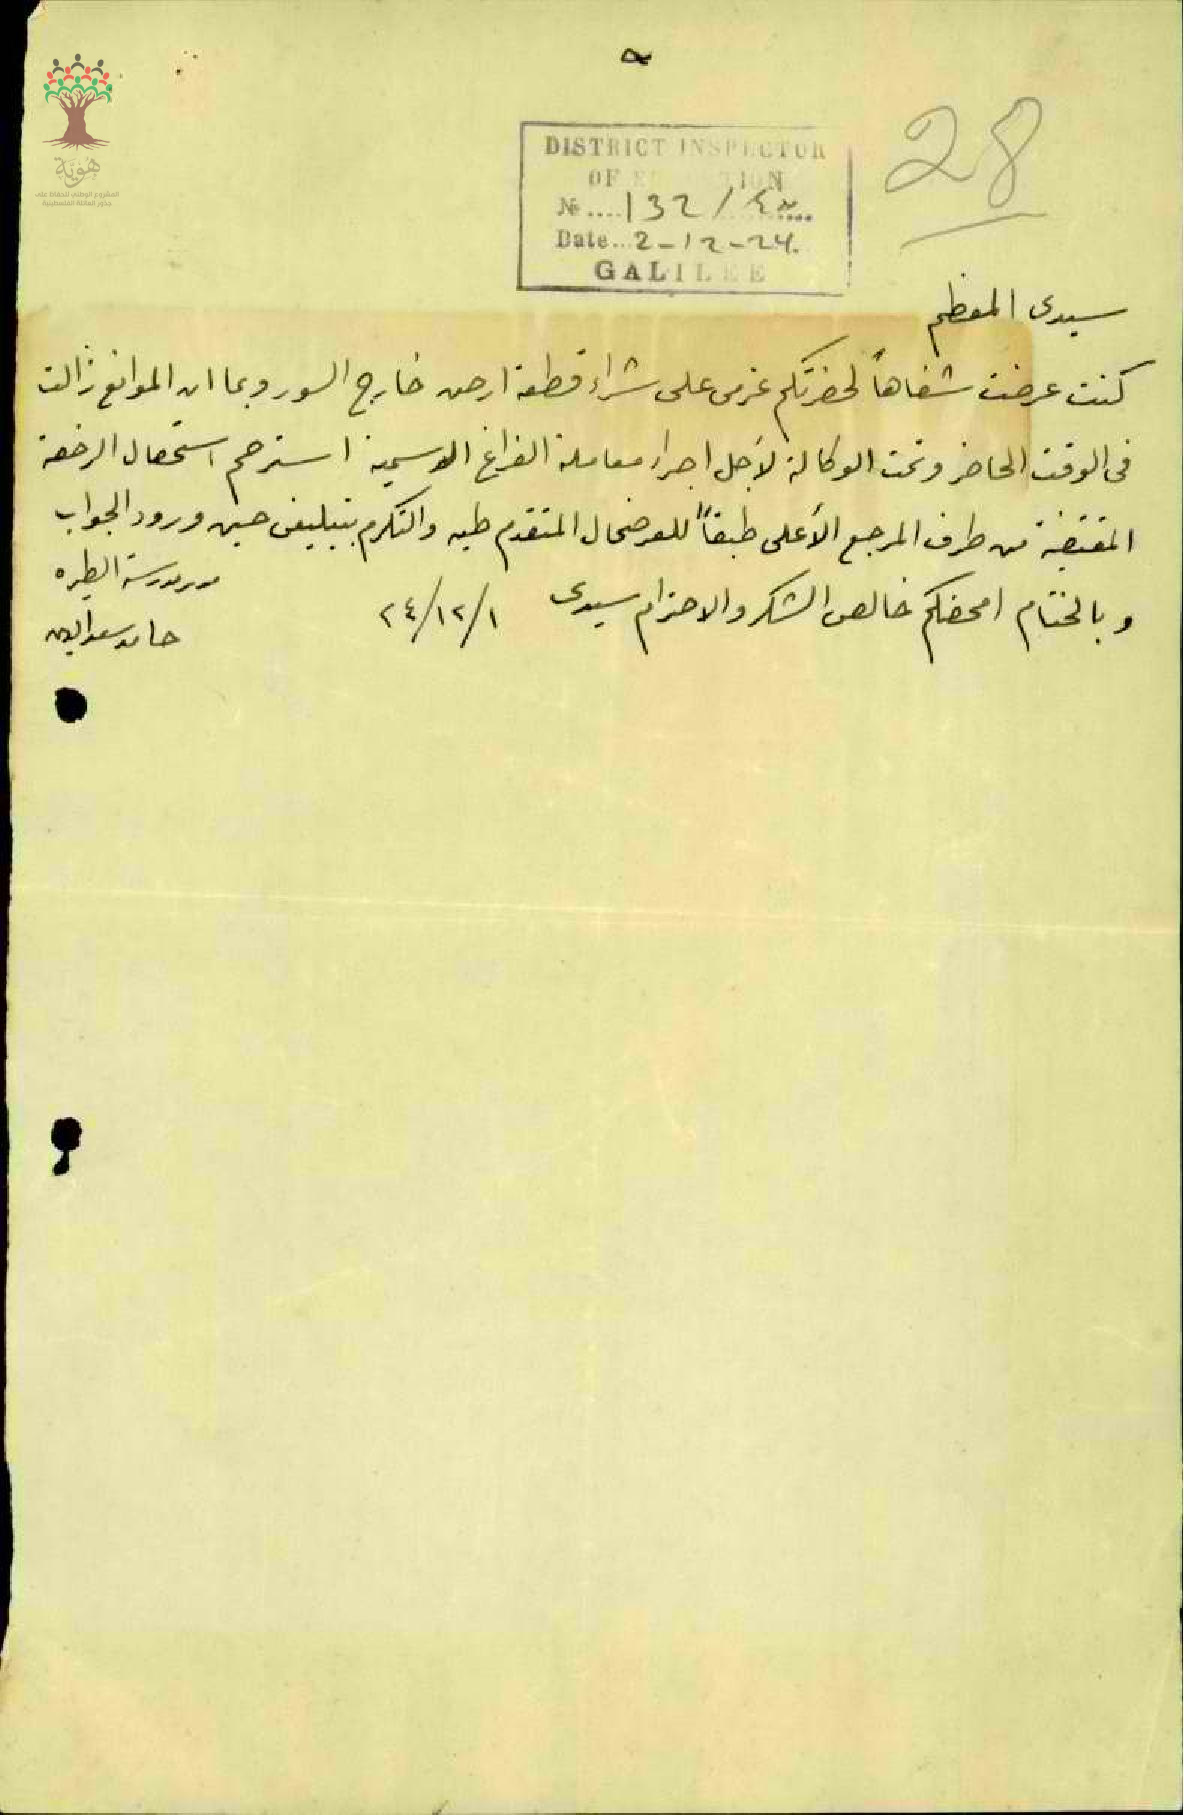 هوية
المشروع الوطني للحفاظ على
جذور العائلة الفلسطينية
DISTRICT INSPECTOR
OF EDUCATION
№ .... 132 /
Date... 2-12-24.
GALILEE
28
سيدى المعظم
كنت عرضت شفاهاً لحضرتكم عزمى على شراء قطعة ارض خارج السور وبما ان الموانع زالت
فى الوقت الحاضر وتمت الوكالة لأجل اجراء معاملة الفراغ الرسمية استرحم استحصال الرخصة
المقتضية من طرف المرجع الأعلى طبقاً للعرضحال المتقدم طيه والتكرم بتبليغى حين ورود الجواب
وبالختام امحضكم خالص الشكر والاحترام سيدى ٢٤/١٢/١
مدير مدرسة الطيره
حامد سعد الدين